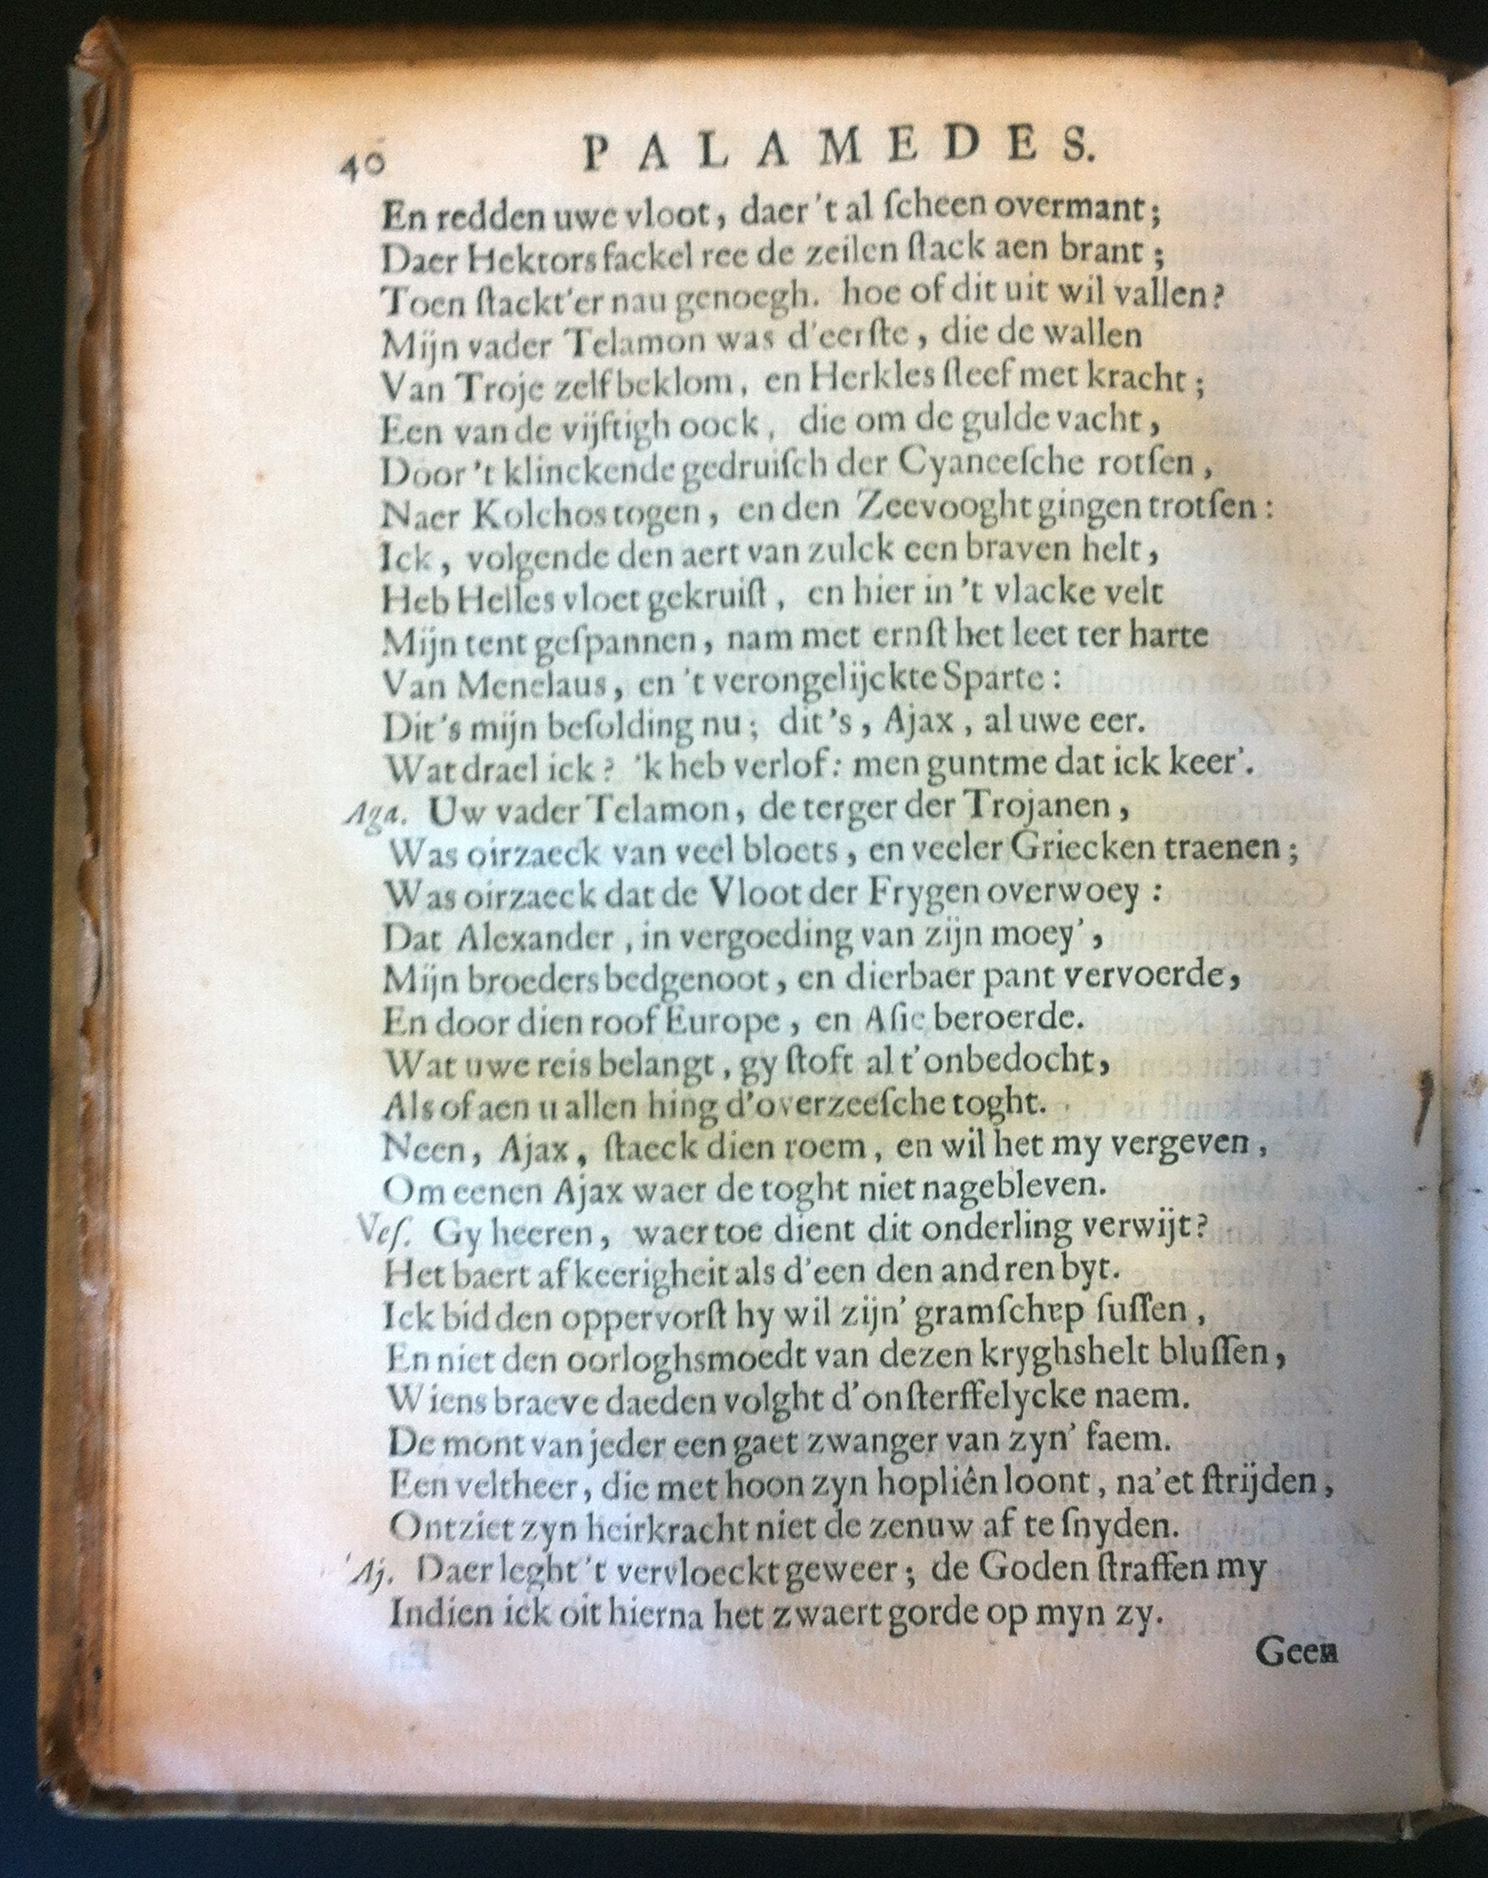 40 PALAMEDES.
En redden uwe vloot, daer 't al ſcheen overmant;
Daer Hektors fackel ree de zeilen ſtack aen brant;
Toen ſtackt'er nau genoegh. hoe of dit uit wil vallen?
Mijn vader Telamon was d'eerſte, die de wallen
Van Troje zelf beklom, en Herkles ſteef met kracht;
Een van de vijftigh oock, die om de gulde vacht,
Door 't klinckende gedruiſch der Cyaneeſche rotſen,
Naer Kolchos togen, en den Zeevooght gingen trotſen:
Ick, volgende den aert van zulck een braven helt,
Heb Helles vloet gekruiſt, en hier in 't vlacke velt
Mijn tent geſpannen, nam met ernſt het leet ter harte
Van Menelaus, en 't verongelijckte Sparte:
Dit's mijn beſolding nu; dit's, Ajax, al uwe eer.
Wat drael ick? 'k heb verlof: men gunt me dat ick keer'.
Aga. Uw vader Telamon, de terger der Trojanen,
Was oirzaeck van veel bloets, en veeler Griecken traenen;
Was oirzaeck dat de Vloot der Frygen overwoey:
Dat Alexander, in vergoeding van zijn moey',
Mijn broeders bedgenoot, en dierbaer pant vervoerde,
En door dien roof Europe, en Aſie beroerde.
Wat uwe reis belangt, gy ſtoft al t'onbedocht,
Als of aen u allen hing d'overzeeſche toght.
Neen, Ajax, ſtaeck dien roem, en wil het my vergeven,
Om eenen Ajax waer de toght niet nagebleven.
Veſ. Gy heeren, waer toe dient dit onderling verwijt?
Het baert afkeerigheit als d'een den andren byt.
Ick bid den oppervorſt hy wil zijn' gramſchep ſuſſen,
En niet den oorloghsmoedt van dezen kryghshelt bluſſen,
Wiens braeve daeden volght d'onſterffelycke naem.
De mont van jeder een gaet zwanger van zyn' faem.
Een veltheer, die met hoon zyn hopliên loont, na'et ſtrijden,
Ontziet zyn heirkracht niet de zenuw af te ſnyden.
'Aj. Daer leght 't vervloeckt geweer; de Goden ſtraffen my
Indien ick oit hierna het zwaert gorde op myn zy.
Geen